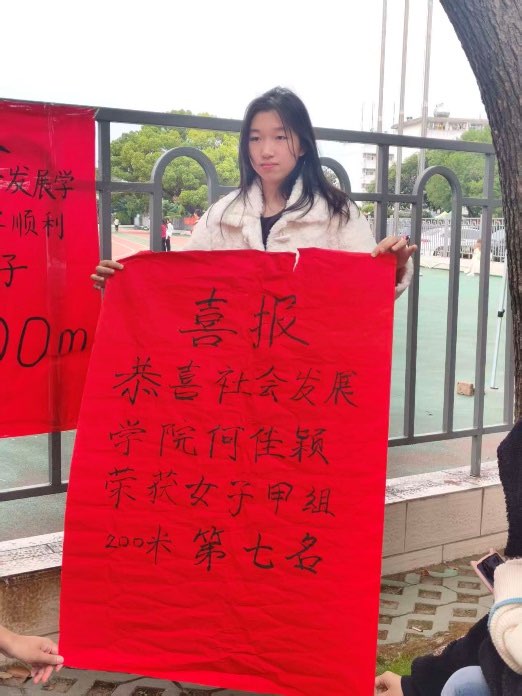 发展学
顺利
子
00m
喜报
恭喜社会发展
学院何佳颖
荣获女子甲组
200米 第七名